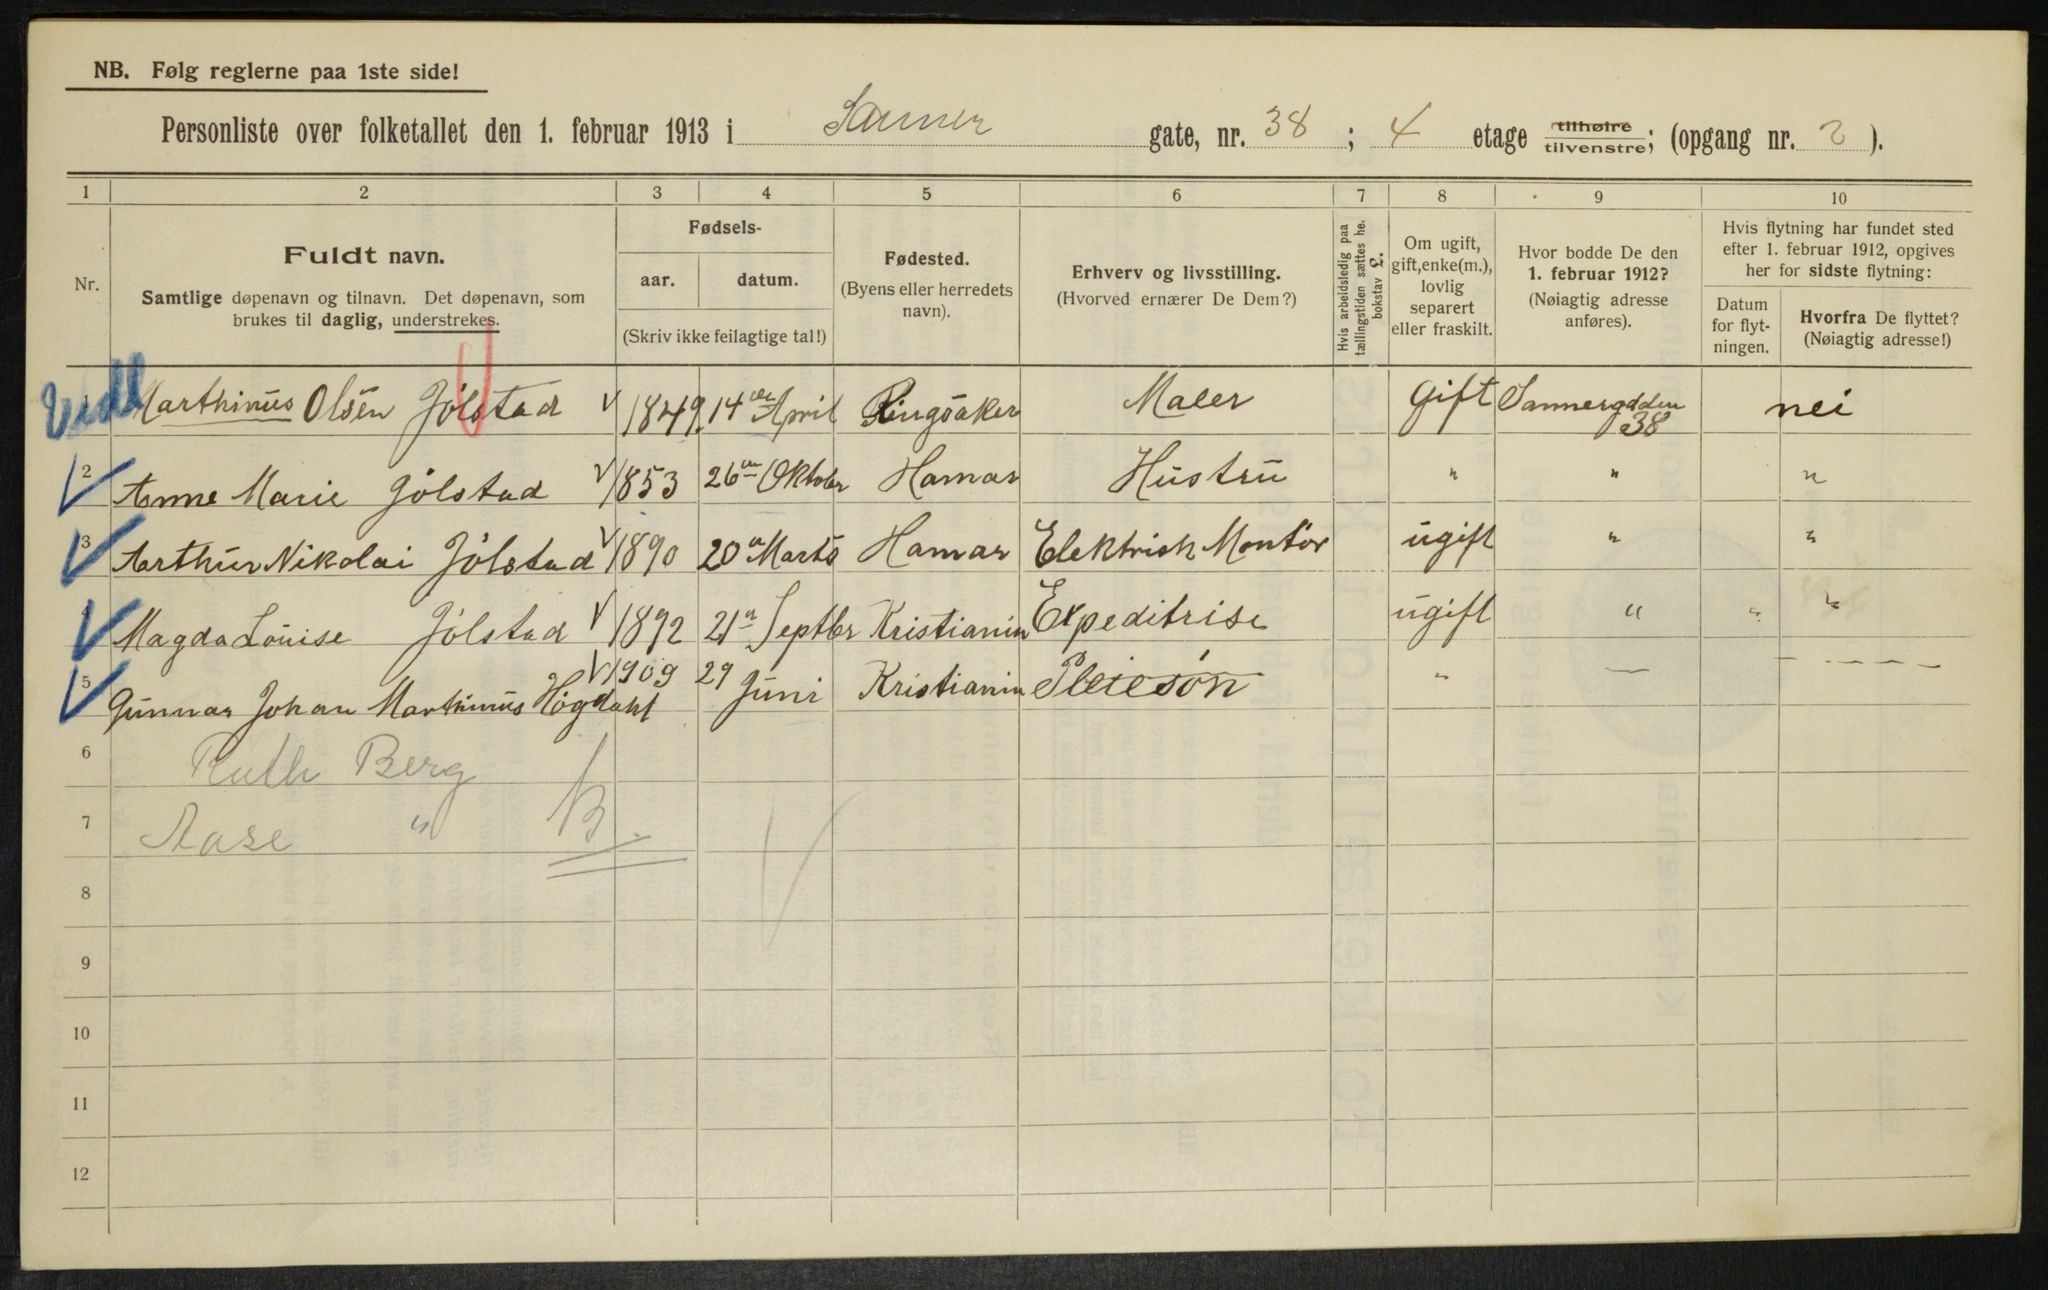 NB. Følg reglerne paa 1ste side!
Personliste over folketallet den 1. februar 1913 i Sanner gate, nr. 38 ; 4 etage tilhøire tilvenstre; (opgang nr. 2 ).
1 2 3 4 5 6 7 8 9 10
Nr.
Fuldt navn.
Samtlige døpenavn og tilnavn. Det døpenavn, som
brukes til daglig, understrekes.
Fødsels-
aar. datum.
(Skriv ikke feilagtige tal!)
Fødested.
(Byens eller herredets
navn).
Erhverv og livsstilling.
(Hvorved ernærer De Dem?)
Hvis arbeidsledig paa
tællingstiden sættes he.
bokstav L.
Om ugift,
gift, enke(m.),
lovlig
separert
eller fraskilt.
Hvor bodde De den
1. februar 1912?
(Nøiagtig adresse
anføres).
Hvis flytning har fundet sted
efter 1. februar 1912, opgives
her for sidste flytning:
Datum
for flyt-
ningen.
Hvorfra De flyttet?
(Nøiagtig adresse!)
Marthinus Olsen Jölstad 1849 14 April Ringsaker Maler Gift Sannergaden 38 nei
2 Anne Marie Jölstad 1853 26 Oktober Hamar Hustru " " "
3 Arthur Nikolai Jölstad 1890 20 Marts Hamar Elektrisk Montör ugift " "
4 Magda Louise Jölstad 1892 21 Septbr Kristiania Expeditrise ugift " " "
5 Gunnar Johan Marthinus Högdahl 1909 29 Juni Kristiania Pleiesön " — – – – –
6 Ruth Berg
7 Aase "
8
9
10
11
12